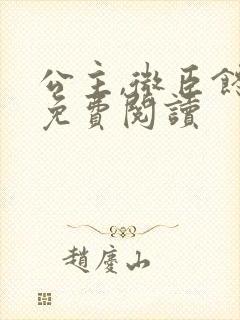 公主,微臣
免費閱讀
趙慶山